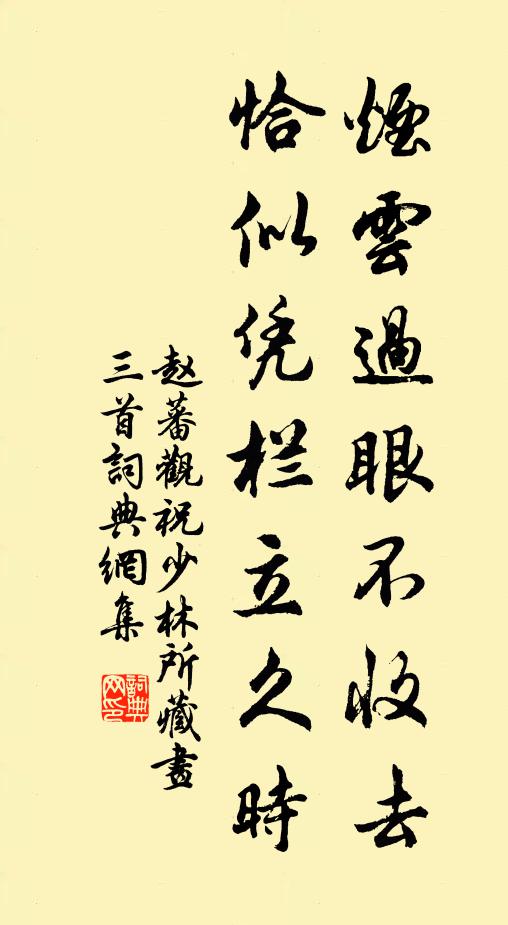 煙雲過眼不收去
恰似凭栏立久時
赵蕃觀祝少林所藏畫
三首詞典網集
詞典
网印